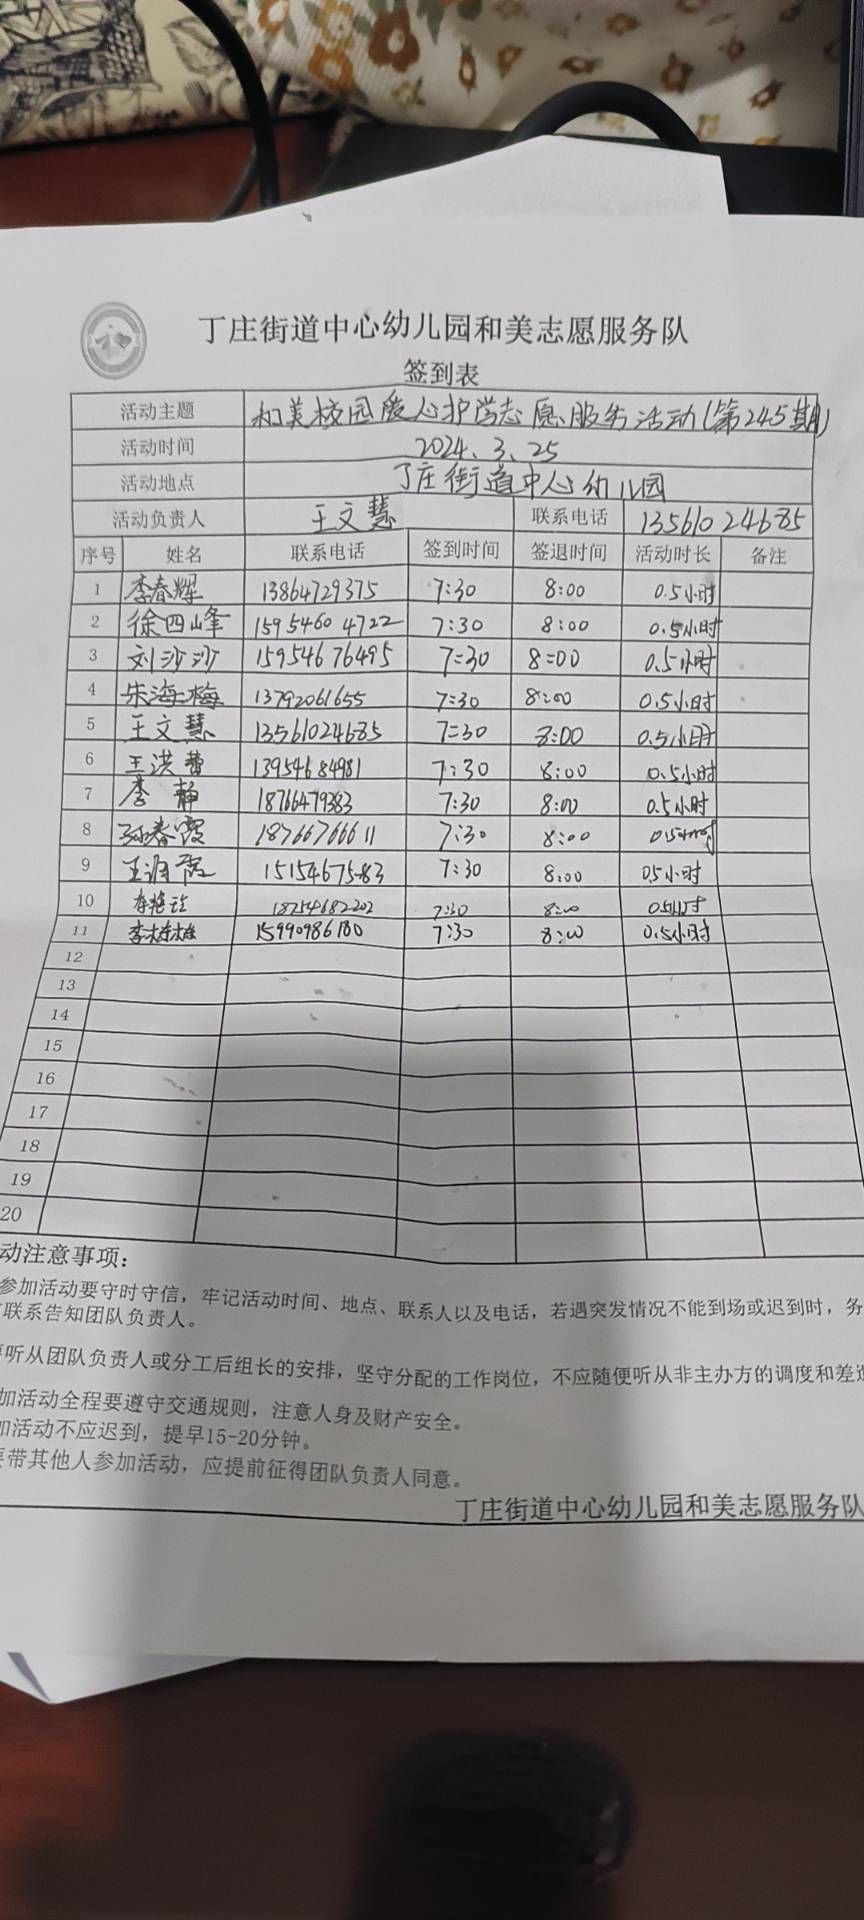 丁庄街道中心幼儿园和美志愿服务队
签到表
活动主题 和美校园爱心护学志愿服务活动(第245期)
活动时间 2024.3.25
活动地点 丁庄街道中心幼儿园
活动负责人 王文慧 联系电话 13561024685
序号 姓名 联系电话 签到时间 签退时间 活动时长 备注
1 李春辉 13864729375 7:30 8:00 0.5小时
2 徐四峰 15954604722 7:30 8:00 0.5小时
3 刘沙沙 15954676495 7:30 8:00 0.5小时
4 朱海梅 13792061655 7:30 8:00 0.5小时
5 王文慧 13561024685 7:30 8:00 0.5小时
6 王洪蕾 13954684981 7:30 8:00 0.5小时
7 李静 18766479383 7:30 8:00 0.5小时
8 孙春霞 18766766611 7:30 8:00 0.5小时
9 15154675483 7:30 8:00 0.5小时
10 18754682202 7:30 8:00 0.5小时
11 15990986180 7:30 8:00 0.5小时
12
13
14
15
16
17
18
19
20
动注意事项：
参加活动要守时守信，牢记活动时间、地点、联系人以及电话，若遇突发情况不能到场或迟到时，务
联系告知团队负责人。
听从团队负责人或分工后组长的安排，坚守分配的工作岗位，不应随便听从非主办方的调度和差遣
加活动全程要遵守交通规则，注意人身及财产安全。
加活动不应迟到，提早15-20分钟。
要带其他人参加活动，应提前征得团队负责人同意。
丁庄街道中心幼儿园和美志愿服务队